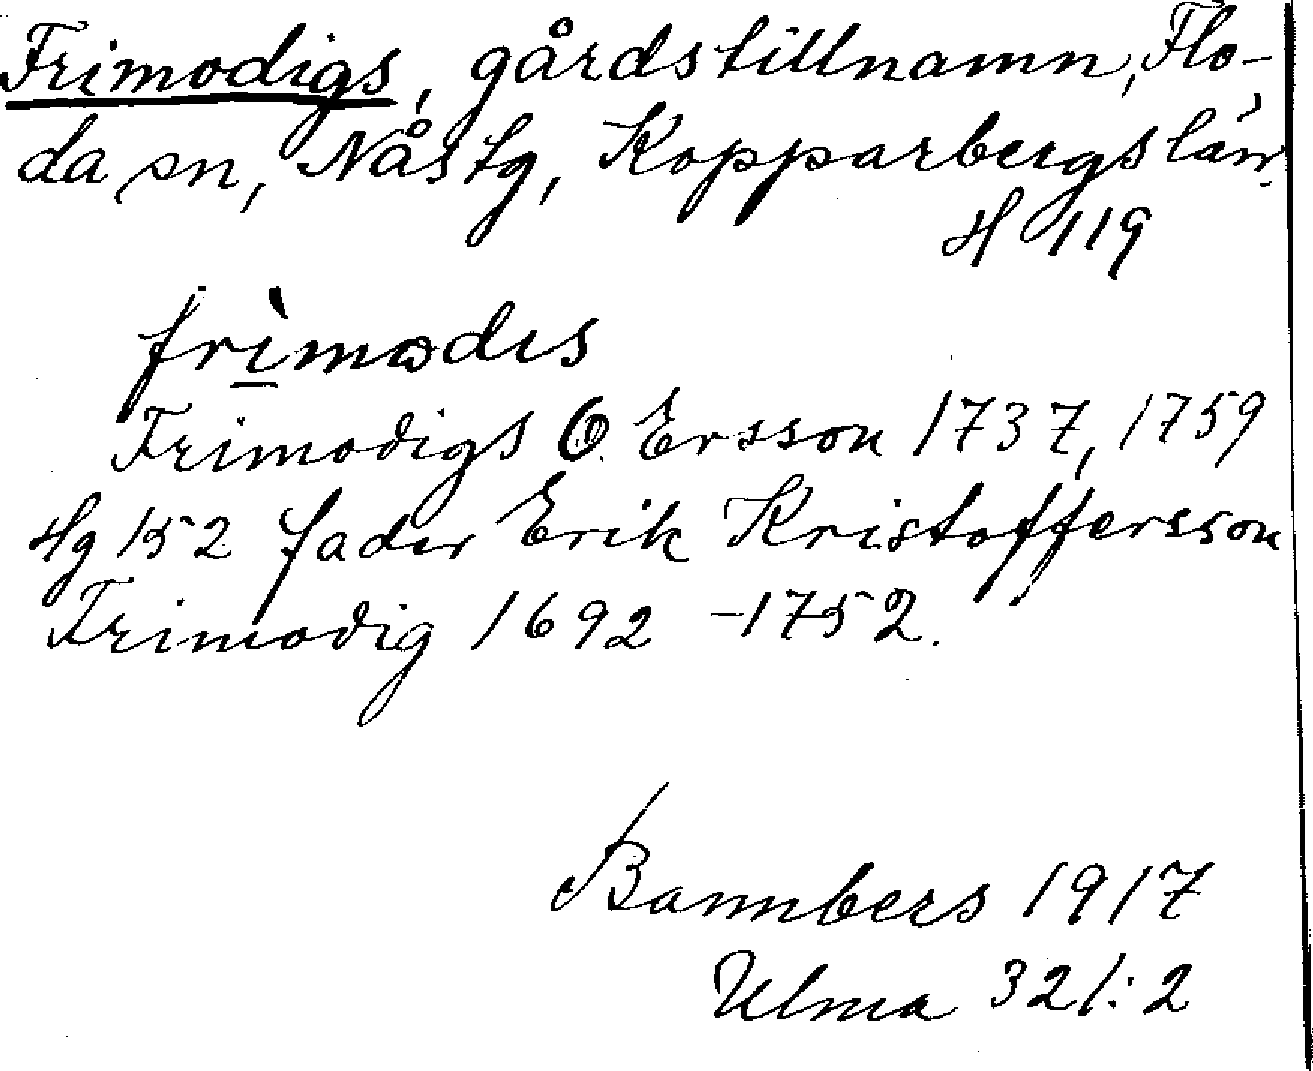 Frimodigs, gårdstillnamn, Flo-
da sn, Nås tg, Kopparbergs län.
H 119
frìmodıs
Frimodigs O. Ersson 1737, 1759
Hg 152 fader Erik Kristoffersson
Frimodig 1692 -1752.
Bannbers 1917
Ulma 321:2